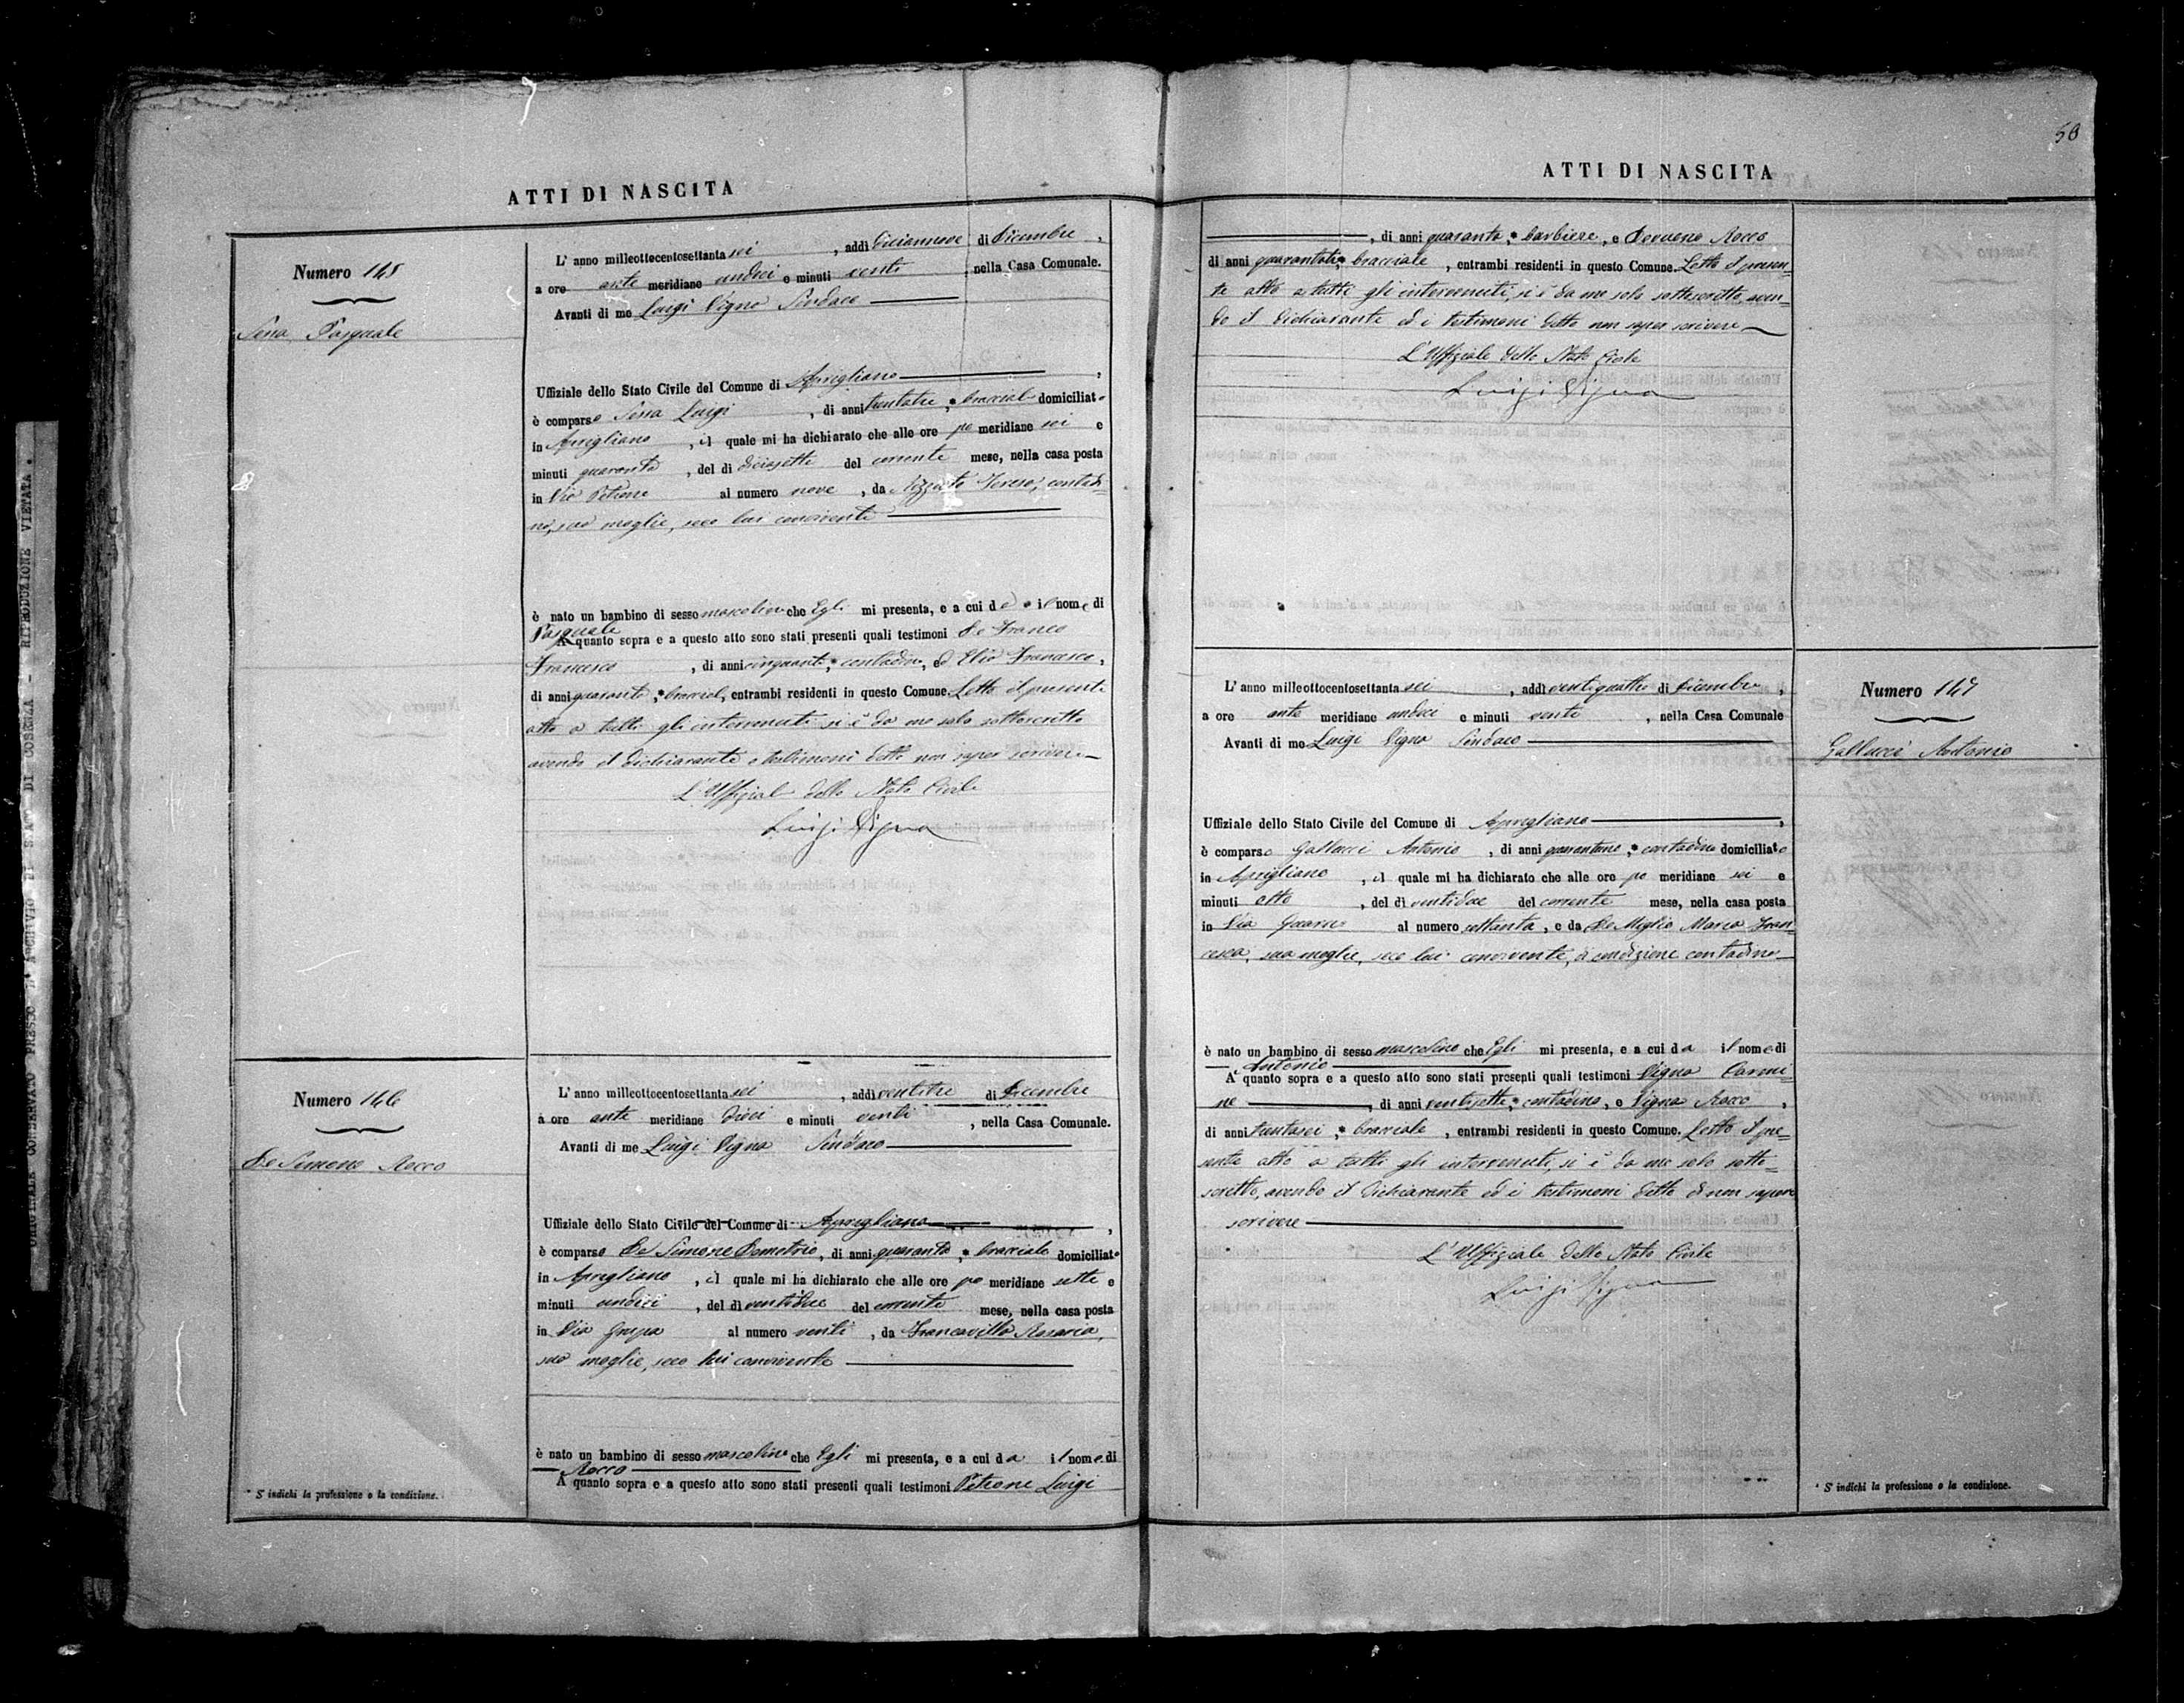 ATTI DI NASCITA
Numero 145
Serra Pasquale
L' anno milleottocentosettanta sei , addi diciannove di Dicembre ,
a ore ante meridiane undici e minuti venti , nella Casa Comunale.
Avanti di me Luigi Vigna Sindaco
Uffiziale dello Stato Civile del Comune di Aprigliano ,
è comparso Serra Luigi , di anni trentatre , * bracciale domiciliato
in Aprigliano , il quale mi ha dichiarato che alle ore po meridiane sei e
minuti quaranta , del dì diciasette del corrente mese, nella casa posta
in Via Petrone al numero nove , da Teresa, contadi=
na, sua moglie, seco lui convivente
è nato un bambino di sesso mascolino che Egli mi presenta, e a cui dà il nome di
Pasquale
A quanto sopra e a questo atto sono stati presenti quali testimoni De Franco
Francesco , di anni cinquanta , * contadino, ed Elia Francesco,
di anni quaranta , * bracciale, entrambi residenti in questo Comune. Letto il presente
atto a tutti gli intervenuti si è da me solo sottoscritto
avendo il dichiarante e testimoni detto non saper scrivere
L'Uffiziale dello Stato Civile
Luigi Vigna
Numero 146
De Simone Rocco
L' anno milleottocentosettanta sei , addi ventitre di Dicembre
a ore ante meridiane dieci e minuti venti , nella Casa Comunale.
Avanti di me Luigi Vigna Sindaco
Uffiziale dello Stato Civile del Comune di Aprigliano ,
è comparso De Simone Demetrio, di anni quaranta , * bracciale domiciliato
in Aprigliano , il quale mi ha dichiarato che alle ore po meridiane sette e
minuti undici , del dì ventidue del corrente mese, nella casa posta
in Via Grupa al numero venti , da Francavilla Rosaria,
sua moglie, seco lui convivente
è nato un bambino di sesso mascolino che Egli mi presenta, e a cui da il nome di
Rocco
A quanto sopra e a questo atto sono stati presenti quali testimoni Petrone Luigi
* S' indichi la professione o la condizione.
50
ATTI DI NASCITA
, di anni quaranta , * barbiere, e Rocco
di anni , * bracciale , entrambi residenti in questo Comune. Letto il presen=
te atto a tutti gli intervenuti, si è da me solo sottoscritto, aven=
do il dichiarante ed i testimoni detto non saper scrivere
L'Uffiziale dello Stato Civile
Luigi Vigna
L' anno milleottocentosettanta sei , addi ventiquattro di Dicembre ,
a ore ante meridiane undici e minuti venti , nella Casa Comunale
Avanti di me Luigi Vigna Sindaco
Numero 147
Gallucci Antonio
Uffiziale dello Stato Civile del Comune di Aprigliano ,
è comparso Gallucci Antonio , di anni quarantuno , * contadino domiciliato
in Aprigliano , il quale mi ha dichiarato che alle ore po meridiane sei e
minuti otto , del dì ventidue del corrente mese, nella casa posta
in Via al numero settanta , e da De Miglio Maria Fran=
cesca, sua moglie, seco lui convivente, di condizione contadina
è nato un bambino di sesso mascolino che Egli mi presenta, e a cui da il nome di
Antonio
A quanto sopra e a questo atto sono stati presenti quali testimoni Vigna Carmi=
ne , di anni ventisette, * contadino, e Vigna Rocco ,
di anni trentasei , * bracciale , entrambi residenti in questo Comune. Letto il pre=
sente atto a tutti gli intervenuti, si è da me solo sotto=
scritto, avendo il dichiarante ed i testimoni detto di non sapere
scrivere
L'Uffiziale dello Stato Civile
Luigi Vigna
* S' indichi la professione o la condizione.